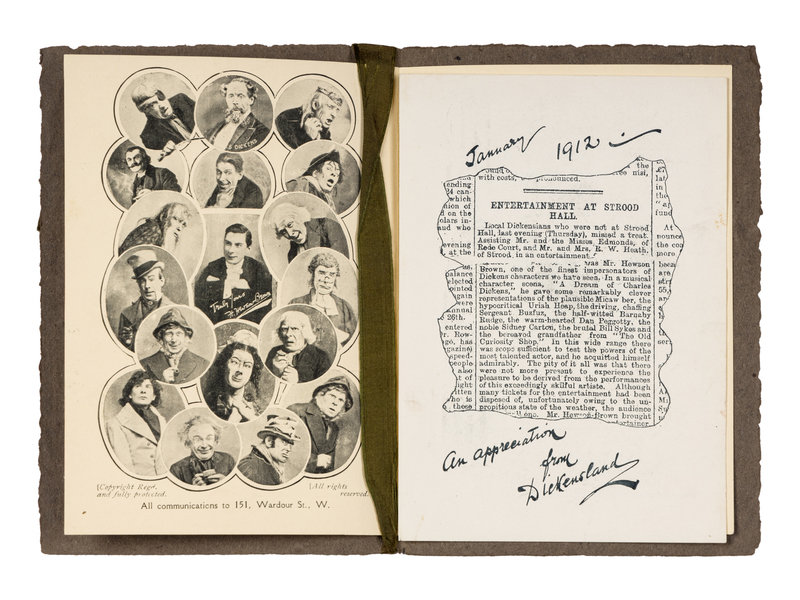 S DICKENS
Truly yours
[Copyright Regd.
and fully protected.
[All rights
reserved.
All communications to 151, Wardour St., W.
January 1912
with costs,
pronounced.
ENTERTAINMENT AT STROOD
HALL.
Local Dickensians who were not at Strood
Hall, last evening (Thursday), missed a treat.
Assisting Mr. and the Misses Edmonds, of
Rede Court, and Mr. and Mrs. R. W. Heath,
of Strood, in an entertainment
was Mr. Hewson
Brown, one of the finest impersonators of
Dickens characters we have seen. In a musical
character scena, "A Dream of Charles
Dickens," he gave some remarkably clever
representations of the plausible Micawber, the
hypocritical Uriah Heep, the driving, chaffing
Sergeant Buzfuz, the half-witted Barnaby
Rudge, the warm-hearted Dan Peggotty, the
noble Sidney Carton, the brutal Bill Sykes and
the bereaved grandfather from "The Old
Curiosity Shop." In this wide range there
was scope sufficient to test the powers of the
most talented actor, and he acquitted himself
admirably. The pity of it all was that there
were not more present to experience the
pleasure to be derived from the performances
of this exceedingly skilful artiste. Although
many tickets for the entertainment had been
disposed of, unfortunately owing to the un-
propitious state of the weather, the audience
Mr. Hewson-Brown brought
An appreciation
from
Dickensland